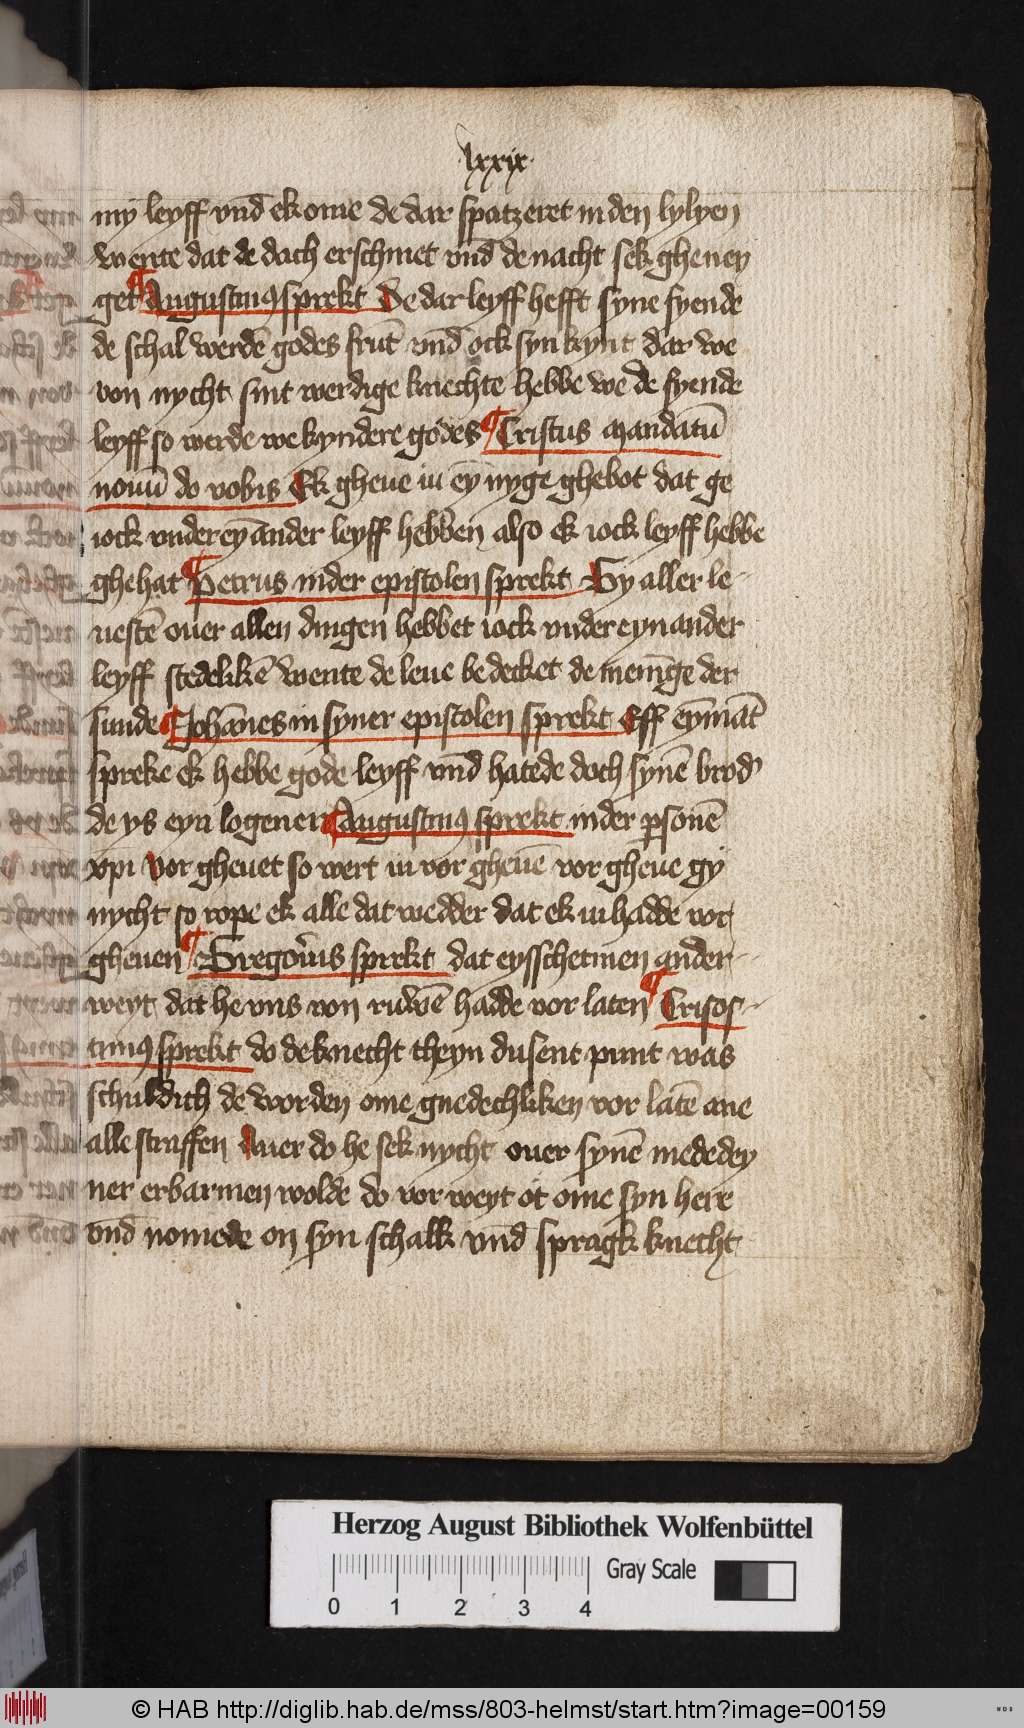 lxxix
my leyff vnd ek ome de dar spatzeret in den lylyen
wente dat de dach erschinet vnd de nacht sek gheney
get Augustinus sprekt De dar leyff hefft syne fyende
de schal werdē godes frūt vnd ock syn kynt dar we
von nycht sint werdige knechte hebbe we de fyende
leyff so werde we kyndere godes Cristus mandatū
nouū do vobis Ek gheue iu eȳ nyge ghebot dat ge
iock vnder eȳ ander leyff hebben also ek iock leyff hebbe
ghehat Petrus in der epistolen sprekt Gy aller le-
uestē ouer allen dingen hebbet iock vnder eynander
leyff stedelikē wente de leue bedecket de menīge der
sunde Johānes in syner epistolen sprekt Eff eymāt
spreke ek hebbe gode leyff vnd hatede doch synē brod'
de ys eyn logener Augustinus sprekt in der psonē
xpi Vor gheuet so wert iu vor gheuē vor gheue gy
nycht so rope ek alle dat wedder dat ek iu hadde vor
gheuen Gregorius sprekt dat eysschet men ander-
weyt dat he vns von ruwē hadde vor laten Crisos-
timus sprekt do de knecht theyn dusent punt was
schuldich de worden ome gnedechliken vor latē ane
alle straffen Auer do he sek nycht ouer synē mededey
ner erbarmen wolde do vor weyt ot ome syn here
vnd nomede on syn schalk vnd spragk knecht
Herzog August Bibliothek Wolfenbüttel
Gray Scale
0 1 2 3 4
© HAB http://diglib.hab.de/mss/803-helmst/start.htm?image=00159